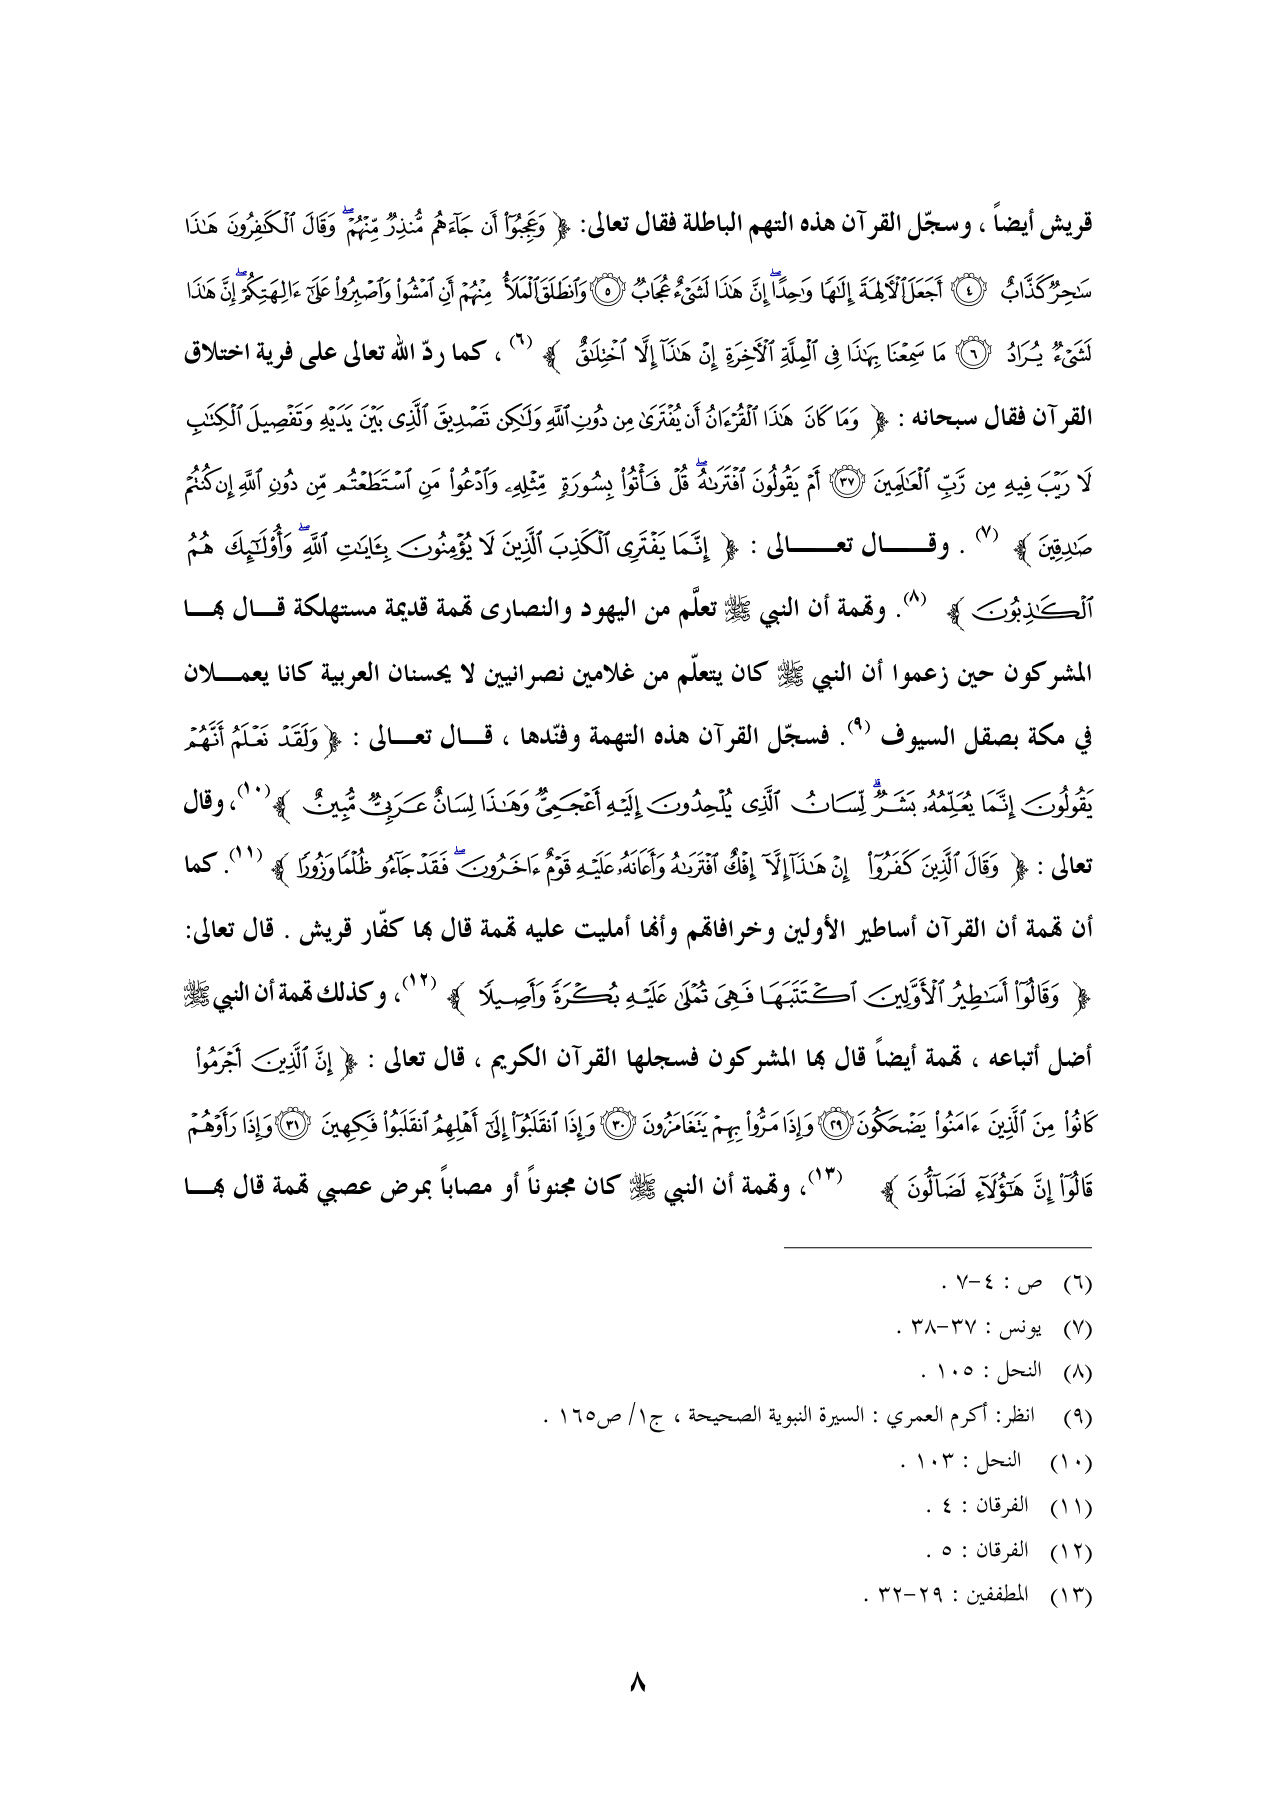 قريش أيضاً ، وسجّل القرآن هذه التهم الباطلة فقال تعالى: ﴿ وَعَجِبُوٓا۟ أَن جَآءَهُم مُّنذِرٌ مِّنْهُمْ ۖ وَقَالَ ٱلْكَـٰفِرُونَ هَـٰذَا
سَـٰحِرٌ كَذَّابٌ ٤ أَجَعَلَ ٱلْءَالِهَةَ إِلَـٰهًا وَٰحِدًا ۖ إِنَّ هَـٰذَا لَشَىْءٌ عُجَابٌ ٥ وَٱنطَلَقَ ٱلْمَلَأُ مِنْهُمْ أَنِ ٱمْشُوا۟ وَٱصْبِرُوا۟ عَلَىٰٓ ءَالِهَتِكُمْ ۖ إِنَّ هَـٰذَا
لَشَىْءٌ يُرَادُ ٦ مَا سَمِعْنَا بِهَـٰذَا فِى ٱلْمِلَّةِ ٱلْءَاخِرَةِ إِنْ هَـٰذَآ إِلَّا ٱخْتِلَـٰقٌ ﴾ (٦) ، كما ردّ الله تعالى على فرية اختلاق
القرآن فقال سبحانه : ﴿ وَمَا كَانَ هَـٰذَا ٱلْقُرْءَانُ أَن يُفْتَرَىٰ مِن دُونِ ٱللَّهِ وَلَـٰكِن تَصْدِيقَ ٱلَّذِى بَيْنَ يَدَيْهِ وَتَفْصِيلَ ٱلْكِتَـٰبِ
لَا رَيْبَ فِيهِ مِن رَّبِّ ٱلْعَـٰلَمِينَ ٣٧ أَمْ يَقُولُونَ ٱفْتَرَىٰهُ ۖ قُلْ فَأْتُوا۟ بِسُورَةٍ مِّثْلِهِۦ وَٱدْعُوا۟ مَنِ ٱسْتَطَعْتُم مِّن دُونِ ٱللَّهِ إِن كُنتُمْ
صَـٰدِقِينَ ﴾ (٧) . وقـــال تعـــالى : ﴿ إِنَّمَا يَفْتَرِى ٱلْكَذِبَ ٱلَّذِينَ لَا يُؤْمِنُونَ بِـَٔايَـٰتِ ٱللَّهِ ۖ وَأُو۟لَـٰٓئِكَ هُمُ
ٱلْكَـٰذِبُونَ ﴾ (٨). وتهمة أن النبي ﷺ تعلَّم من اليهود والنصارى تهمة قديمة مستهلكة قـــال بهـــا
المشركون حين زعموا أن النبي ﷺ كان يتعلّم من غلامين نصرانيين لا يحسنان العربية كانا يعمـــلان
في مكة بصقل السيوف (٩). فسجّل القرآن هذه التهمة وفنّدها ، قـــال تعـــالى : ﴿ وَلَقَدْ نَعْلَمُ أَنَّهُمْ
يَقُولُونَ إِنَّمَا يُعَلِّمُهُۥ بَشَرٌ ۗ لِّسَانُ ٱلَّذِى يُلْحِدُونَ إِلَيْهِ أَعْجَمِىٌّ وَهَـٰذَا لِسَانٌ عَرَبِىٌّ مُّبِينٌ ﴾(١٠)، وقال
تعالى : ﴿ وَقَالَ ٱلَّذِينَ كَفَرُوٓا۟ إِنْ هَـٰذَآ إِلَّآ إِفْكٌ ٱفْتَرَىٰهُ وَأَعَانَهُۥ عَلَيْهِ قَوْمٌ ءَاخَرُونَ ۖ فَقَدْ جَآءُو ظُلْمًا وَزُورًا ﴾ (١١). كما
أن تهمة أن القرآن أساطير الأولين وخرافاتهم وأنها أمليت عليه تهمة قال بها كفّار قريش . قال تعالى:
﴿ وَقَالُوٓا۟ أَسَـٰطِيرُ ٱلْأَوَّلِينَ ٱكْتَتَبَهَا فَهِىَ تُمْلَىٰ عَلَيْهِ بُكْرَةً وَأَصِيلًا ﴾ (١٢)، وكذلك تهمة أن النبي ﷺ
أضل أتباعه ، تهمة أيضاً قال بها المشركون فسجلها القرآن الكريم ، قال تعالى : ﴿ إِنَّ ٱلَّذِينَ أَجْرَمُوا۟
كَانُوا۟ مِنَ ٱلَّذِينَ ءَامَنُوا۟ يَضْحَكُونَ ٢٩ وَإِذَا مَرُّوا۟ بِهِمْ يَتَغَامَزُونَ ٣٠ وَإِذَا ٱنقَلَبُوٓا۟ إِلَىٰٓ أَهْلِهِمُ ٱنقَلَبُوا۟ فَكِهِينَ ٣١ وَإِذَا رَأَوْهُمْ
قَالُوٓا۟ إِنَّ هَـٰٓؤُلَآءِ لَضَآلُّونَ ﴾ (١٣)، وتهمة أن النبي ﷺ كان مجنوناً أو مصاباً بمرض عصبي تهمة قال بهـــا
(٦) ص : ٤-٧ .
(٧) يونس : ٣٧-٣٨ .
(٨) النحل : ١٠٥ .
(٩) انظر: أكرم العمري : السيرة النبوية الصحيحة ، ج١/ ص١٦٥ .
(١٠) النحل : ١٠٣ .
(١١) الفرقان : ٤ .
(١٢) الفرقان : ٥ .
(١٣) المطففين : ٢٩-٣٢ .
٨